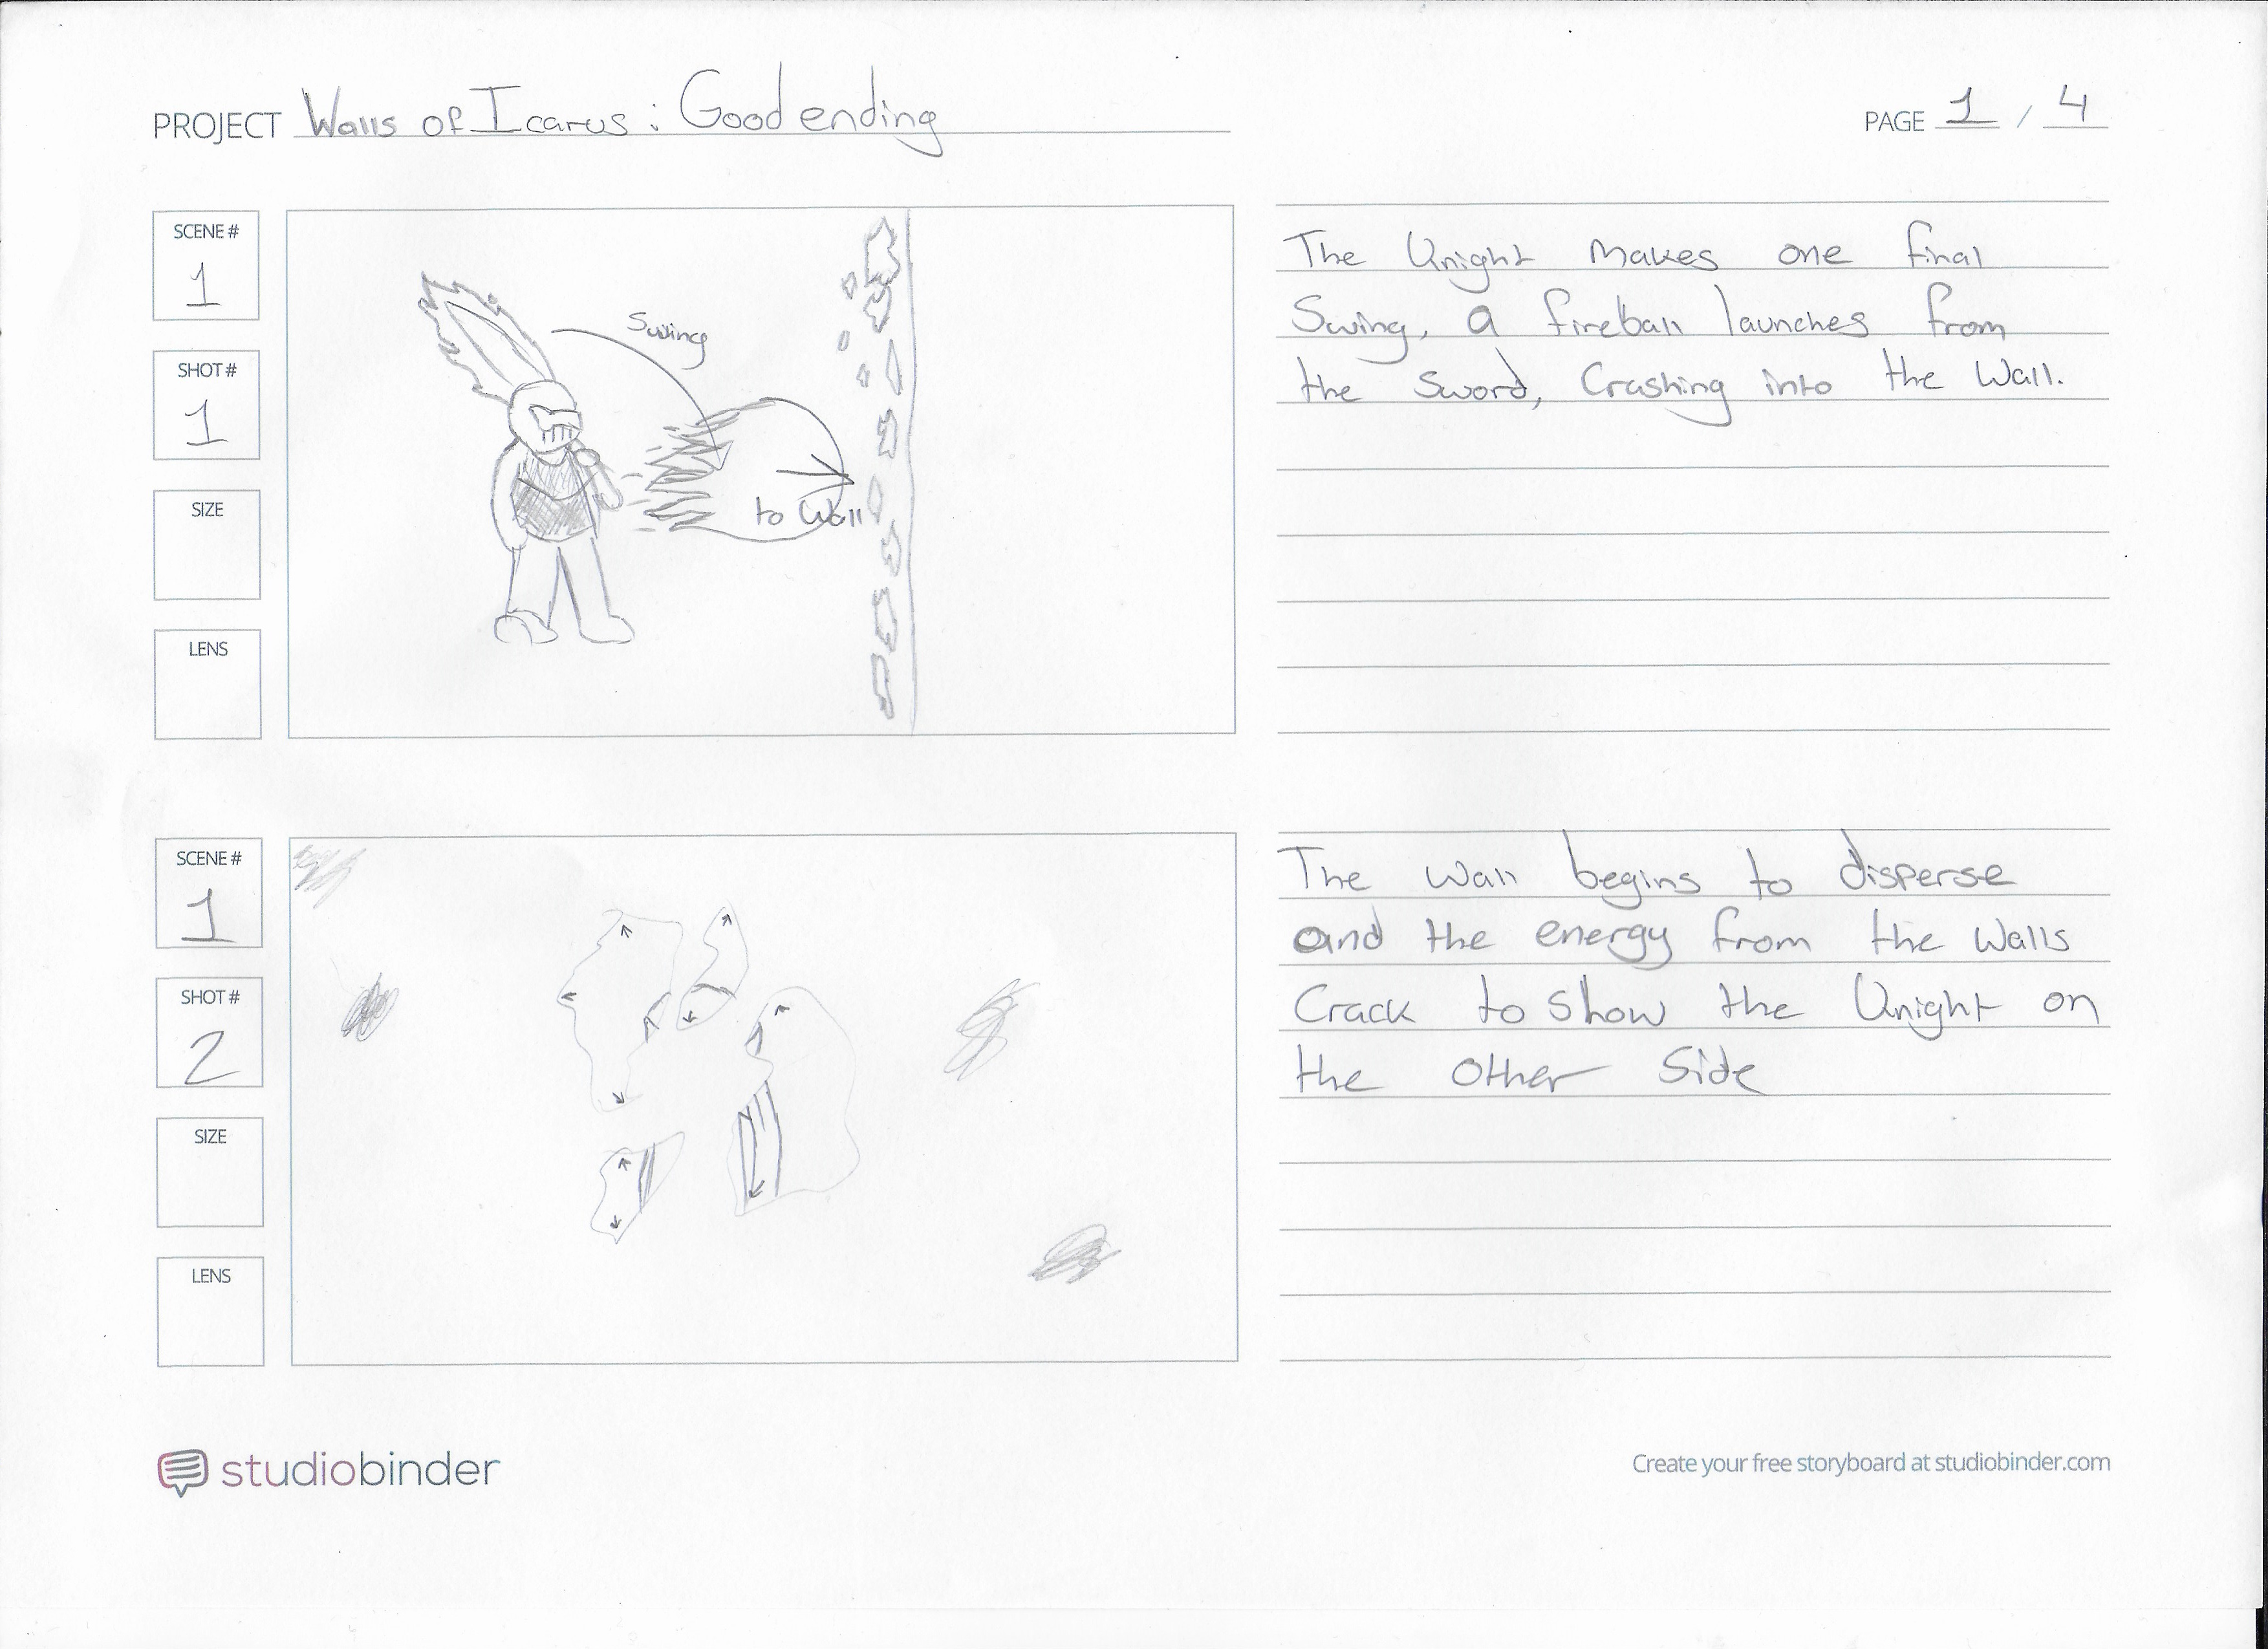 PROJECT Walls of Icarus : Good ending
PAGE 1 / 4
SCENE #
1
SHOT #
1
SIZE
LENS
Swing
to Wall
The Knight Makes one final
Swing, a fireball launches from
the Sword, Crashing into the Wall.
SCENE #
1
SHOT #
2
SIZE
LENS
The Wall begins to disperse
and the energy from the Walls
Crack to Show the Knight on
the Other Side
studiobinder
Create your free storyboard at studiobinder.com